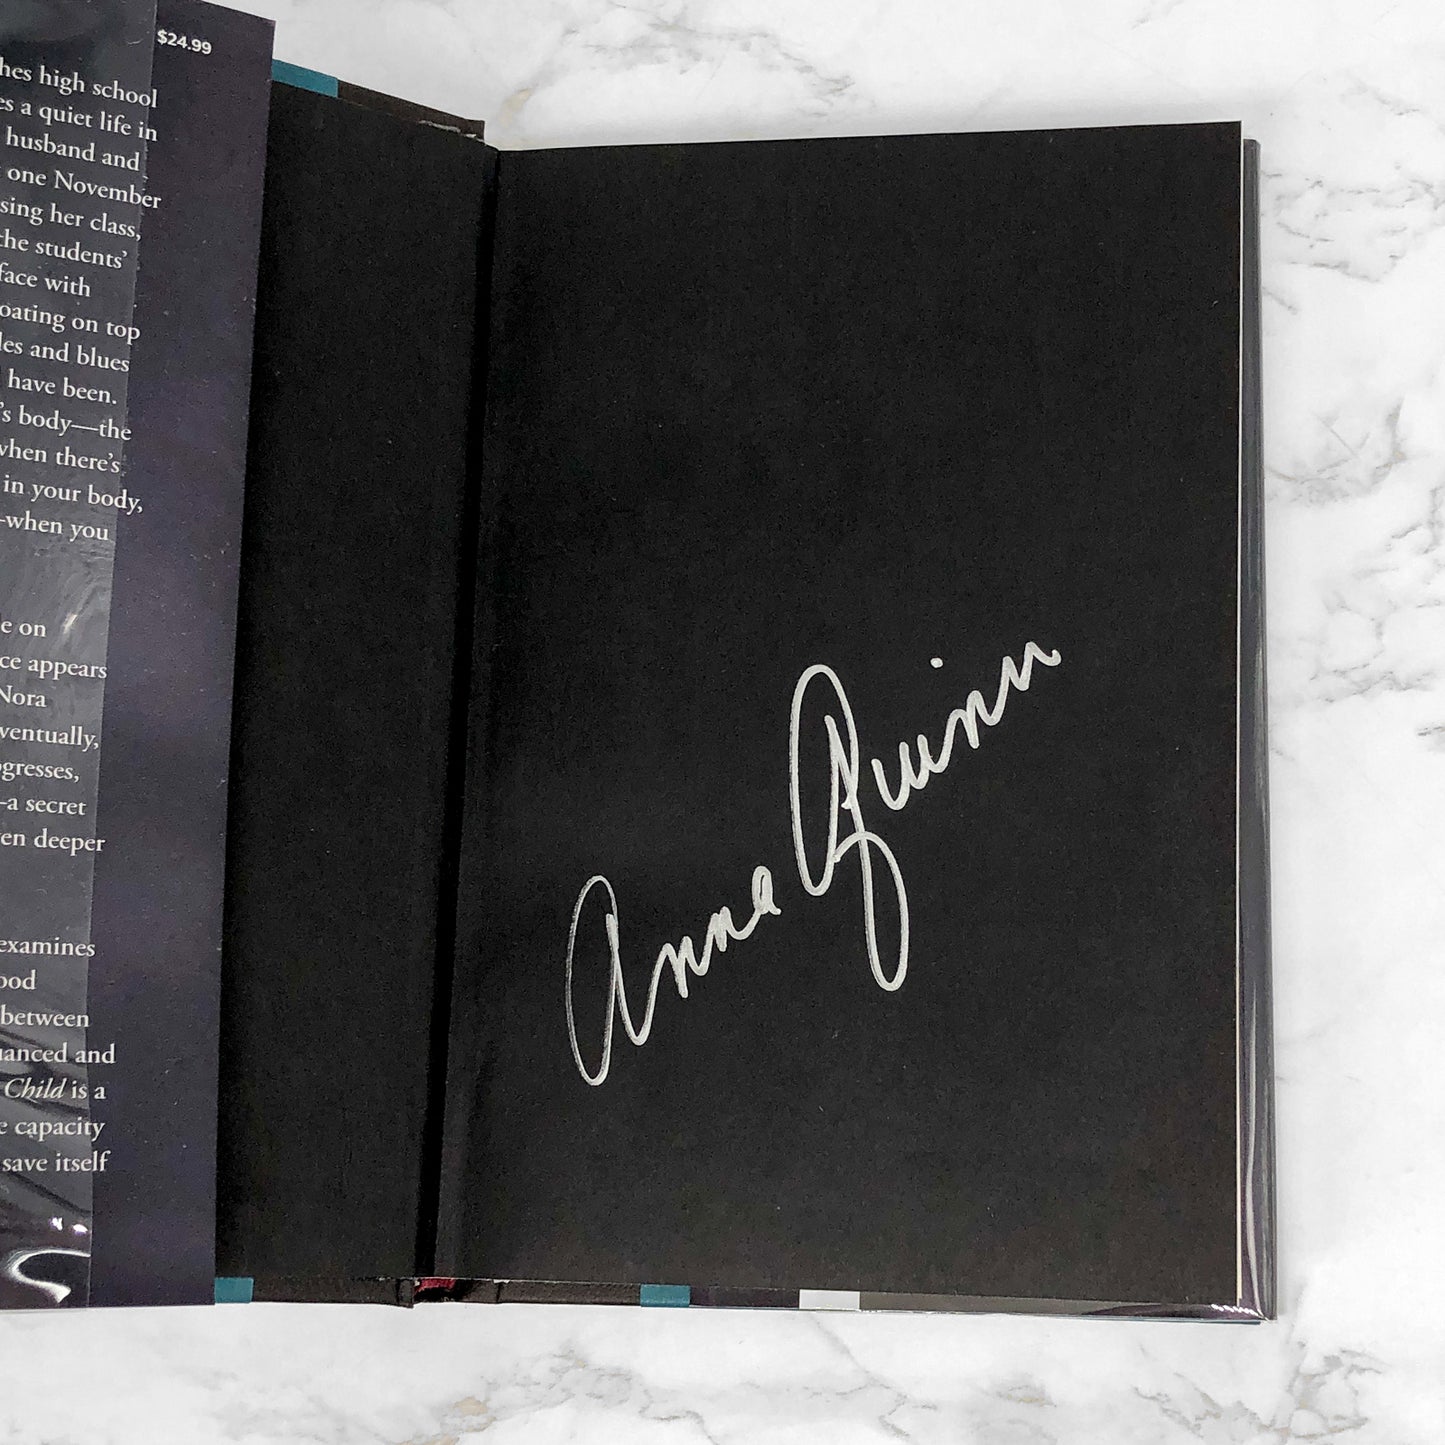 $24.99
hes high school
es a quiet life in
husband and
one November
sing her class,
the students’
face with
oating on top
les and blues
have been.
’s body—the
when there’s
in your body,
—when you
e on
ce appears
Nora
ventually,
ogresses,
—a secret
en deeper
examines
ood
between
uanced and
Child is a
e capacity
save itself
Anna Quinn